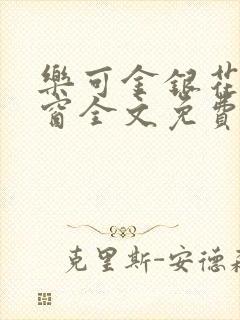 樂可金銀花
窗全文免費
克里斯-安德森